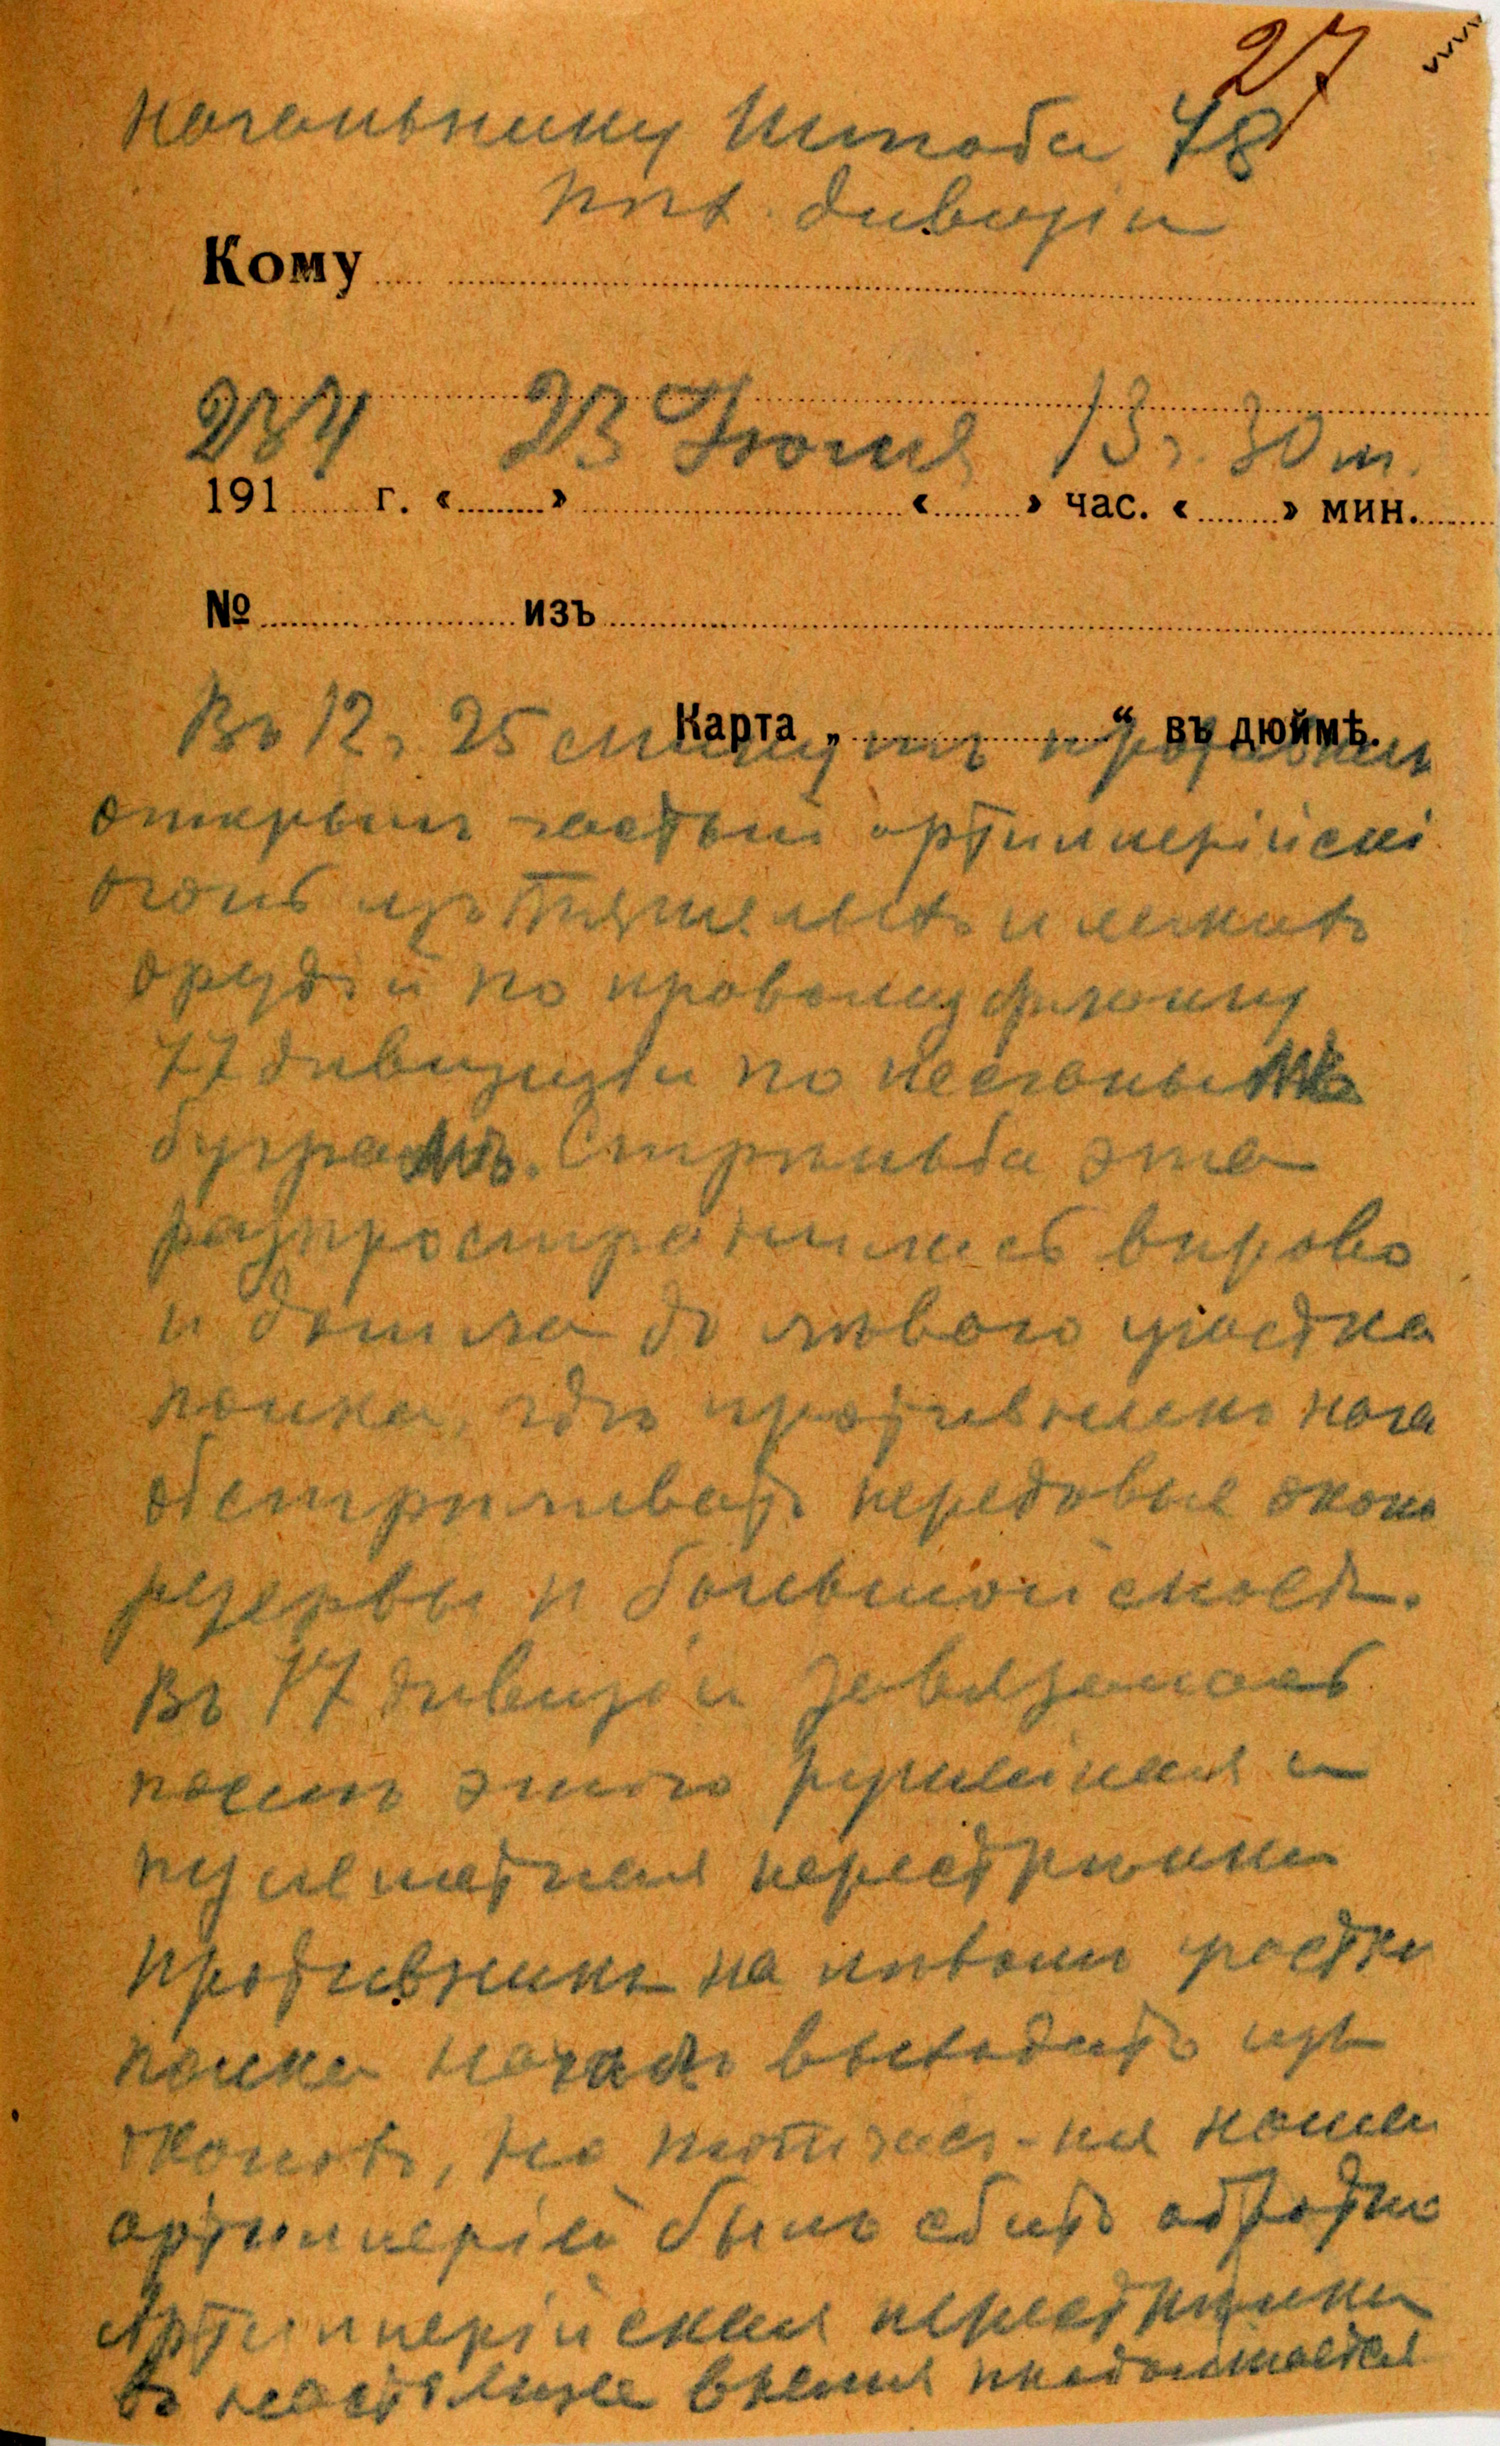 27
Начальнику Штаба 78
пѣх. дивизіи
Кому
234 23 Іюня 13 ч. 30 м.
191 г. « » « » час. « » мин.
№ изъ
Карта „ “ въ дюймѣ.
Въ 12 ч. 25 минутъ противникъ
открылъ частый артиллерійскі
огонь изъ тяжелыхъ и легкихъ
орудій по правому флангу
77 дивизіи по песчанымъ
буграмъ. Стрѣльба эта
разпространилась вправо
и дошла до лѣваго участка
полка, гдѣ противникъ нача
обстрѣливать передовые окопы
резервы и большой мостъ.
Въ 77 дивизіи завязалась
послѣ этого ружейная и
пулеметная перестрѣлка
Противникъ на лѣвомъ участкѣ
полка началъ выходить изъ
окоповъ, но тотчасъ-же нашей
артиллеріей былъ сбитъ обратно
Артиллерійская перестрѣлка
въ настоящее время продолжается